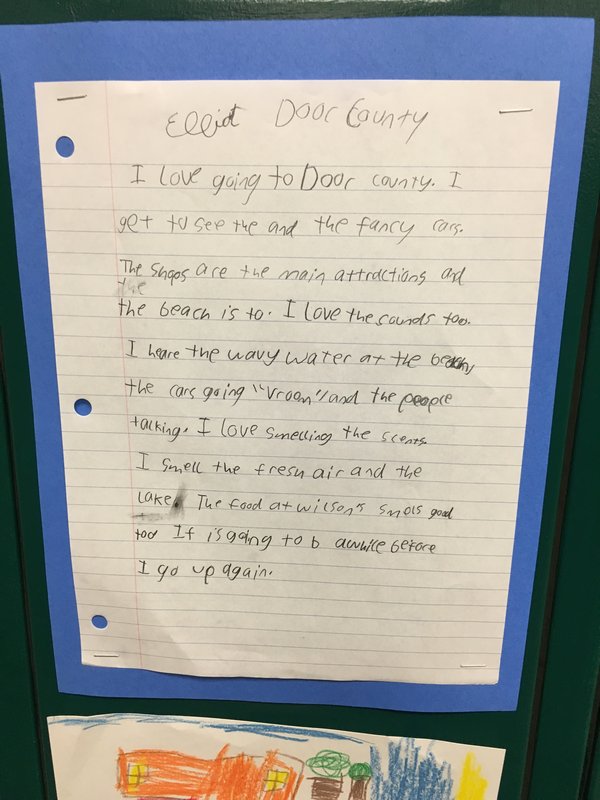 Elliot Door County
I love going to Door county. I
get to see the and the fancy cars.
The shops are the main attractions and
the
the beach is to. I love the sounds too.
I heare the wavy water at the beach,
the cars going "Vroom" and the people
talking. I love smelling the scents.
I smell the fresh air and the
lake. The food at wilson's smols good
too It is going to b awhile before
I go up again.